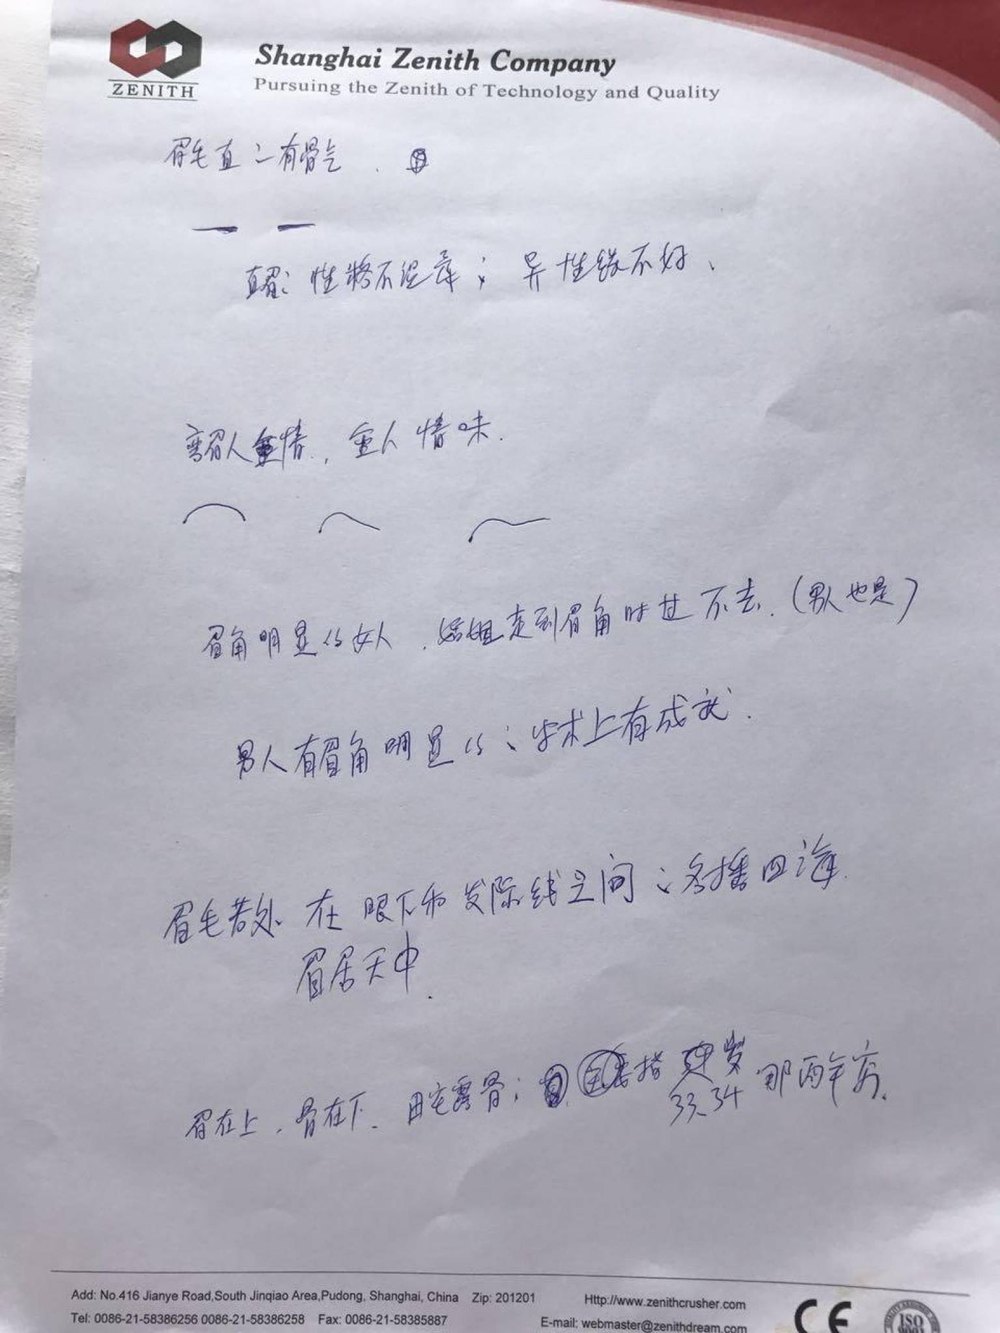 ZENITH
Shanghai Zenith Company
Pursuing the Zenith of Technology and Quality
眉毛直：有骨气.
直眉：性格不温柔；异性缘不好、
弯眉人重情，重人情味.
眉角明显的女人，婚姻走到眉角时过不去.（男人也是）
男人有眉角明显的：学术上有成就.
眉毛若处在眼下和发际线之间：名播四海.
眉居天中.
眉在上，骨在下. 田宅露骨：
33、34 那两年穷.
Add: No.416 Jianye Road,South Jinqiao Area,Pudong, Shanghai, China Zip: 201201 Http://www.zenithcrusher.com
Tel: 0086-21-58386256 0086-21-58386258 Fax: 0086-21-58385887 E-mail: webmaster@zenithdream.com
CE
ISO